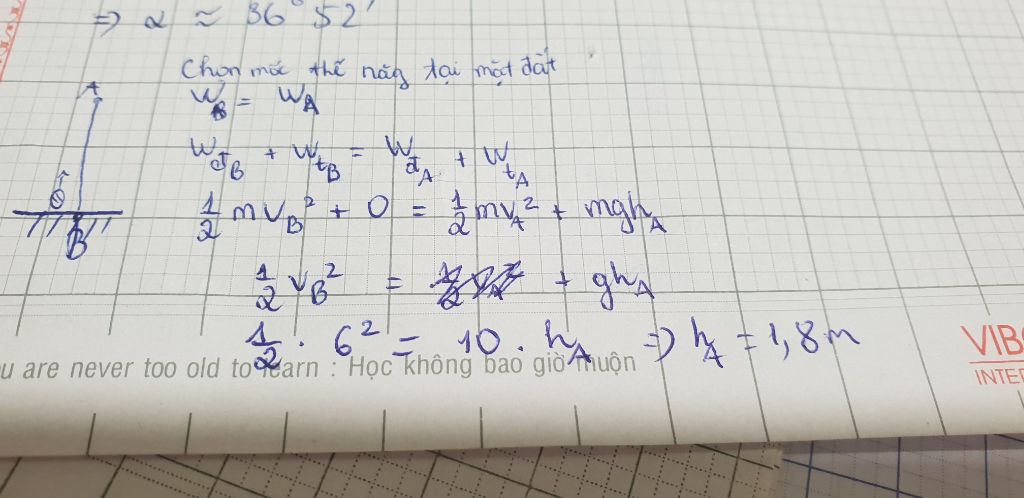 ⇒ α ≈ 36° 52'
Chọn mốc thế năng tại mặt đất
W_B = W_A
W_đ_B + W_t_B = W_đ_A + W_t_A
1/2 m v_B² + 0 = 1/2 m v_A² + mgh_A
1/2 v_B² = + gh_A
1/2 . 6² = 10 . h_A ⇒ h_A = 1,8m
A
B
u are never too old to learn : Học không bao giờ muộn
VIB
INTER